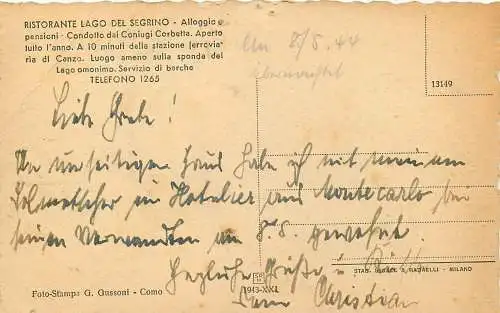 RISTORANTE LAGO DEL SEGRINO - Alloggio e
pensioni - Condotto dai Coniugi Corbetta. Aperto
tutto l'anno. A 10 minuti della stazione ferrovia-
ria di Canzo. Luogo ameno sulla sponda del
Lago omonimo. Servizio di barche
TELEFONO 1265
An 8/5.44
13149
Liebe Grete!
In umseitigem Haus habe ich mit meinem
Dolmetscher ein Hotelier aus Montecarlo bei
seinen Verwandten am 8.5. gewohnt.
Herzliche Grüße u.
Dein Christian
STAB. & RAINELLI - MILANO
Foto-Stampa G. Gussoni - Como
1943-XXI